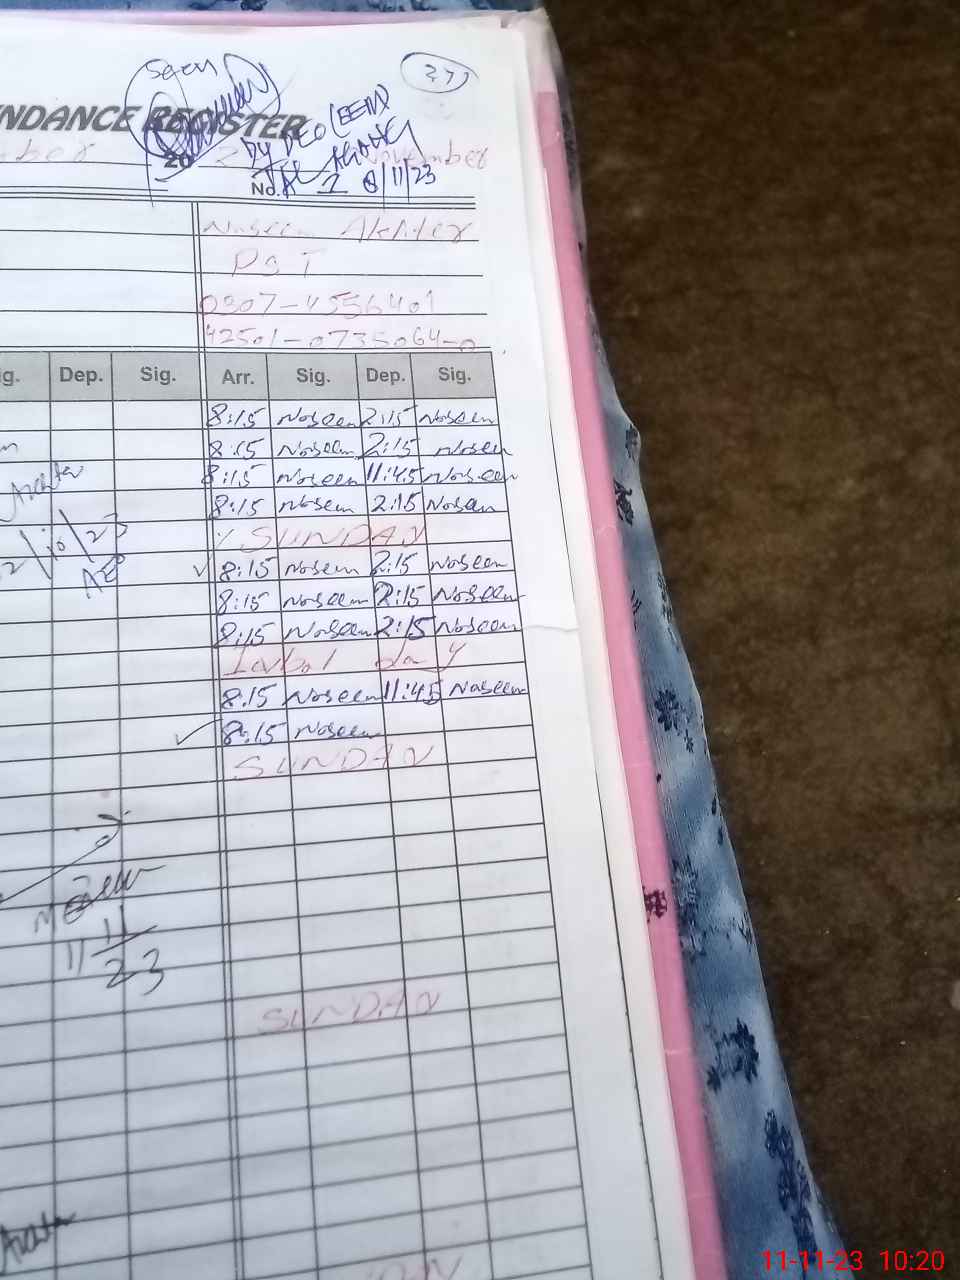 Seen
27
NDANCE REGISTER
20 2 November
Dy DEO (EEM)
No. 1 8/11/23
Naseem Akhter
PST
0307-4556401
42501-0735064-0
ig. Dep. Sig. Arr. Sig. Dep. Sig.
8:15 Naseem 2:15 Naseem
8:15 Naseem 2:15 Naseem
8:15 Naseem 11:45 Naseem
8:15 Naseem 2:15 Naseem
SUNDAY
8:15 Naseem 2:15 Naseem
8:15 Naseem 2:15 Naseem
8:15 Naseem 2:15 Naseem
Iqbal day
8:15 Naseem 11:45 Naseem
8:15 Naseem
SUNDAY
SUNDAY
/10/23
AEO
11-11-23
11-11-23 10:20